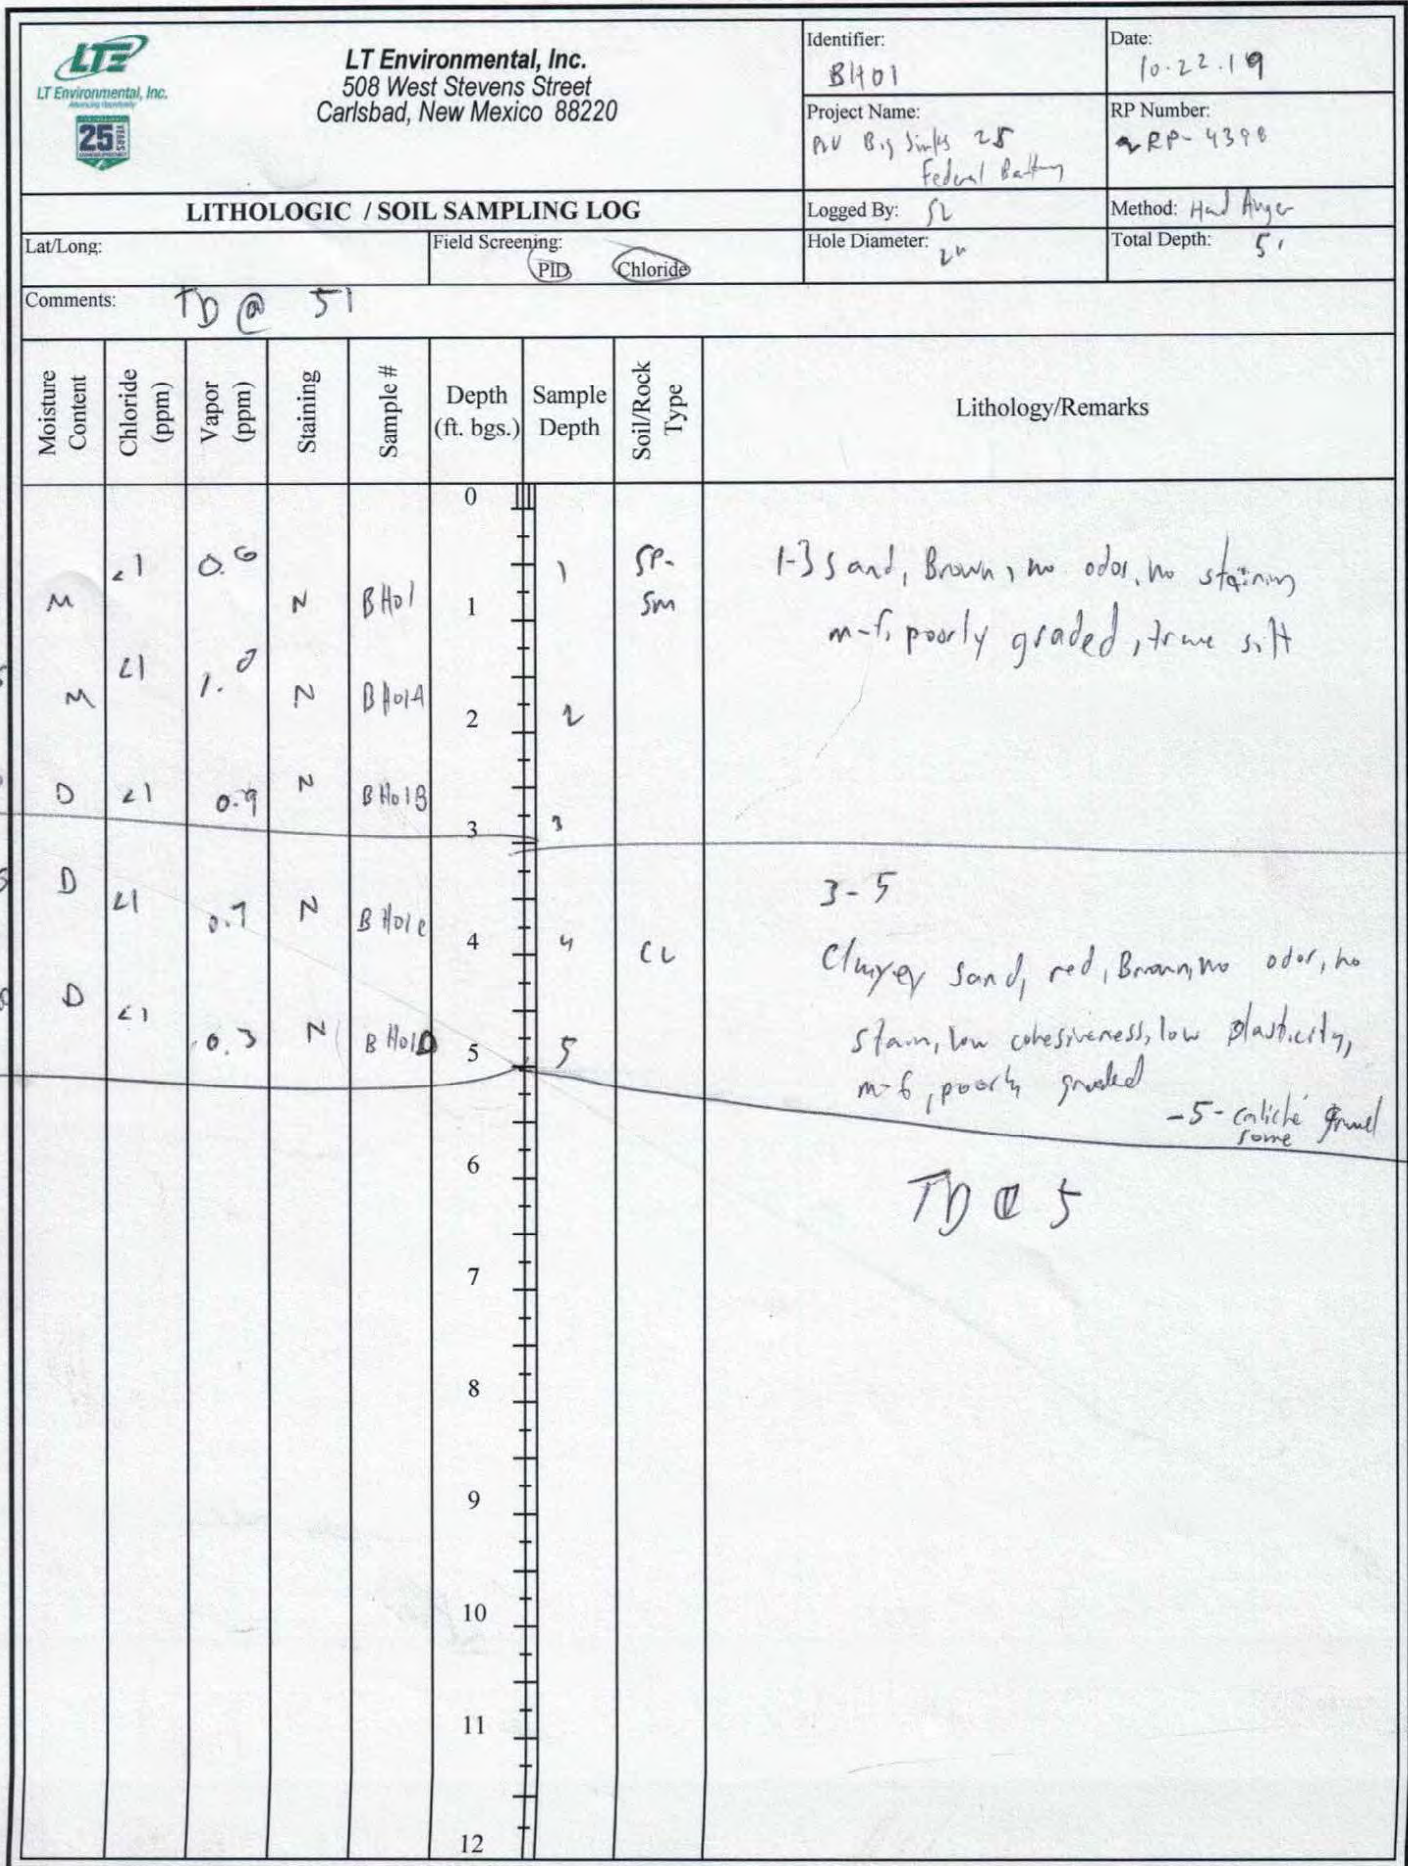 LTE
LT Environmental, Inc.
Advancing Opportunity
25 YEARS
LT Environmental, Inc.
508 West Stevens Street
Carlsbad, New Mexico 88220
Identifier:
BH01
Date:
10.22.19
Project Name:
PLU Big Sinks 25
Federal Battery
RP Number:
2RP-4398
LITHOLOGIC / SOIL SAMPLING LOG
Logged By: SL
Method: Hand Auger
Lat/Long:
Field Screening:
PID Chloride
Hole Diameter: 2"
Total Depth: 5'
Comments: TD @ 5'
Moisture Content
Chloride (ppm)
Vapor (ppm)
Staining
Sample #
Depth (ft. bgs.)
Sample Depth
Soil/Rock Type
Lithology/Remarks
0
M <1 0.6 N BH01 1 1 SP-SM
1-3 Sand, Brown, no odor, no staining
m-f, poorly graded, trace silt
M <1 1.0 N BH01A 2 2
D <1 0.9 N BH01B 3 3
3-5
D <1 0.7 N BH01C 4 4 CL
Clayey sand, red, Brown, no odor, no
stain, low cohesiveness, low plasticity,
m-f, poorly graded
D <1 0.3 N BH01D 5 5
-5- caliche gravel
some
6
TD @ 5
7
8
9
10
11
12